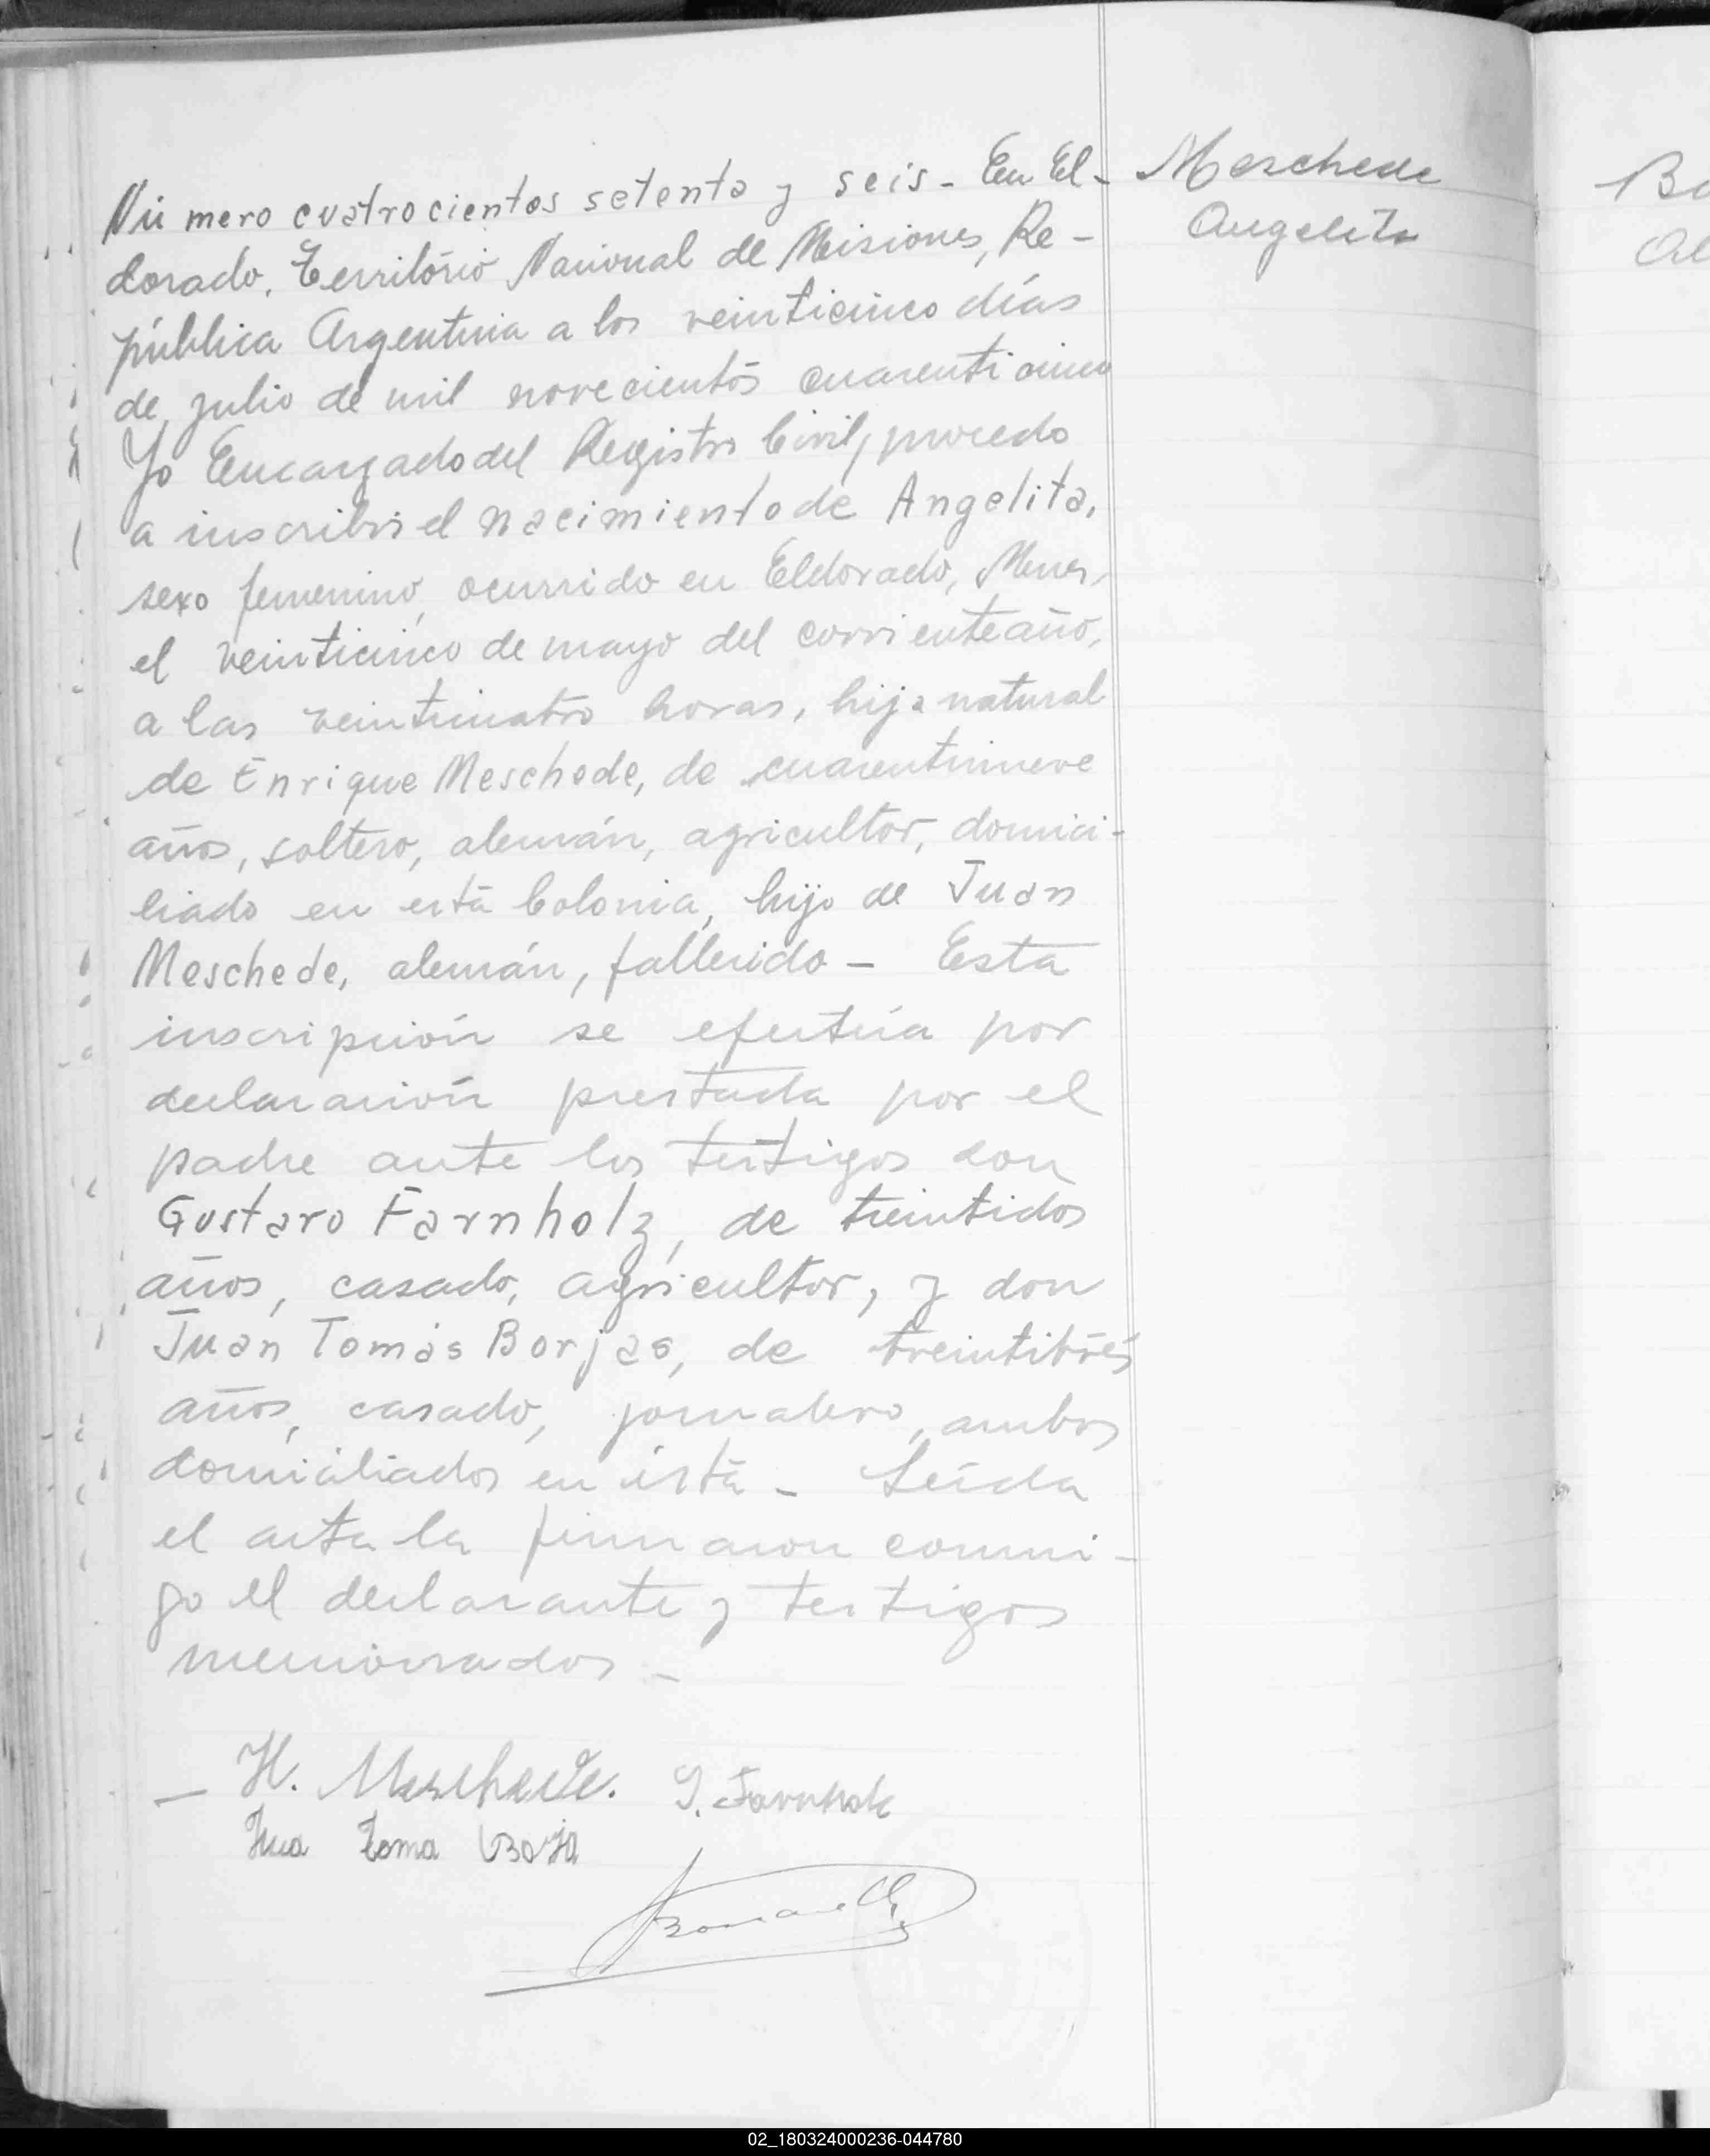 Número cuatrocientos setenta y seis - En El-
dorado, Territorio Nacional de Misiones, Re-
pública Argentina a los veinticinco días
de julio de mil novecientos cuarenticinco
Yo Encargado del Registro Civil, procedo
a inscribir el nacimiento de Angelita,
sexo femenino, ocurrido en Eldorado, Mnes,
el veinticinco de mayo del corriente año,
a las veinticuatro horas, hija natural
de Enrique Meschede, de cuarentinueve
años, soltero, alemán, agricultor, domici-
liado en esta Colonia, hijo de Juan
Meschede, alemán, fallecido - Esta
inscripción se efectúa por
declaración prestada por el
padre ante los testigos don
Gustavo Farnholz, de treintidos
años, casado, agricultor, y don
Juan Tomás Borjas, de treintitrés
años, casado, jornalero, ambos
domiciliados en ésta - Leída
el acta la firmaron conmi-
go el declarante y testigos
mencionados -
Meschede
Angelita
Be
Al
- H. Meschede. G. Farnholz
Hua Toma Boja
02_180324000236-044780